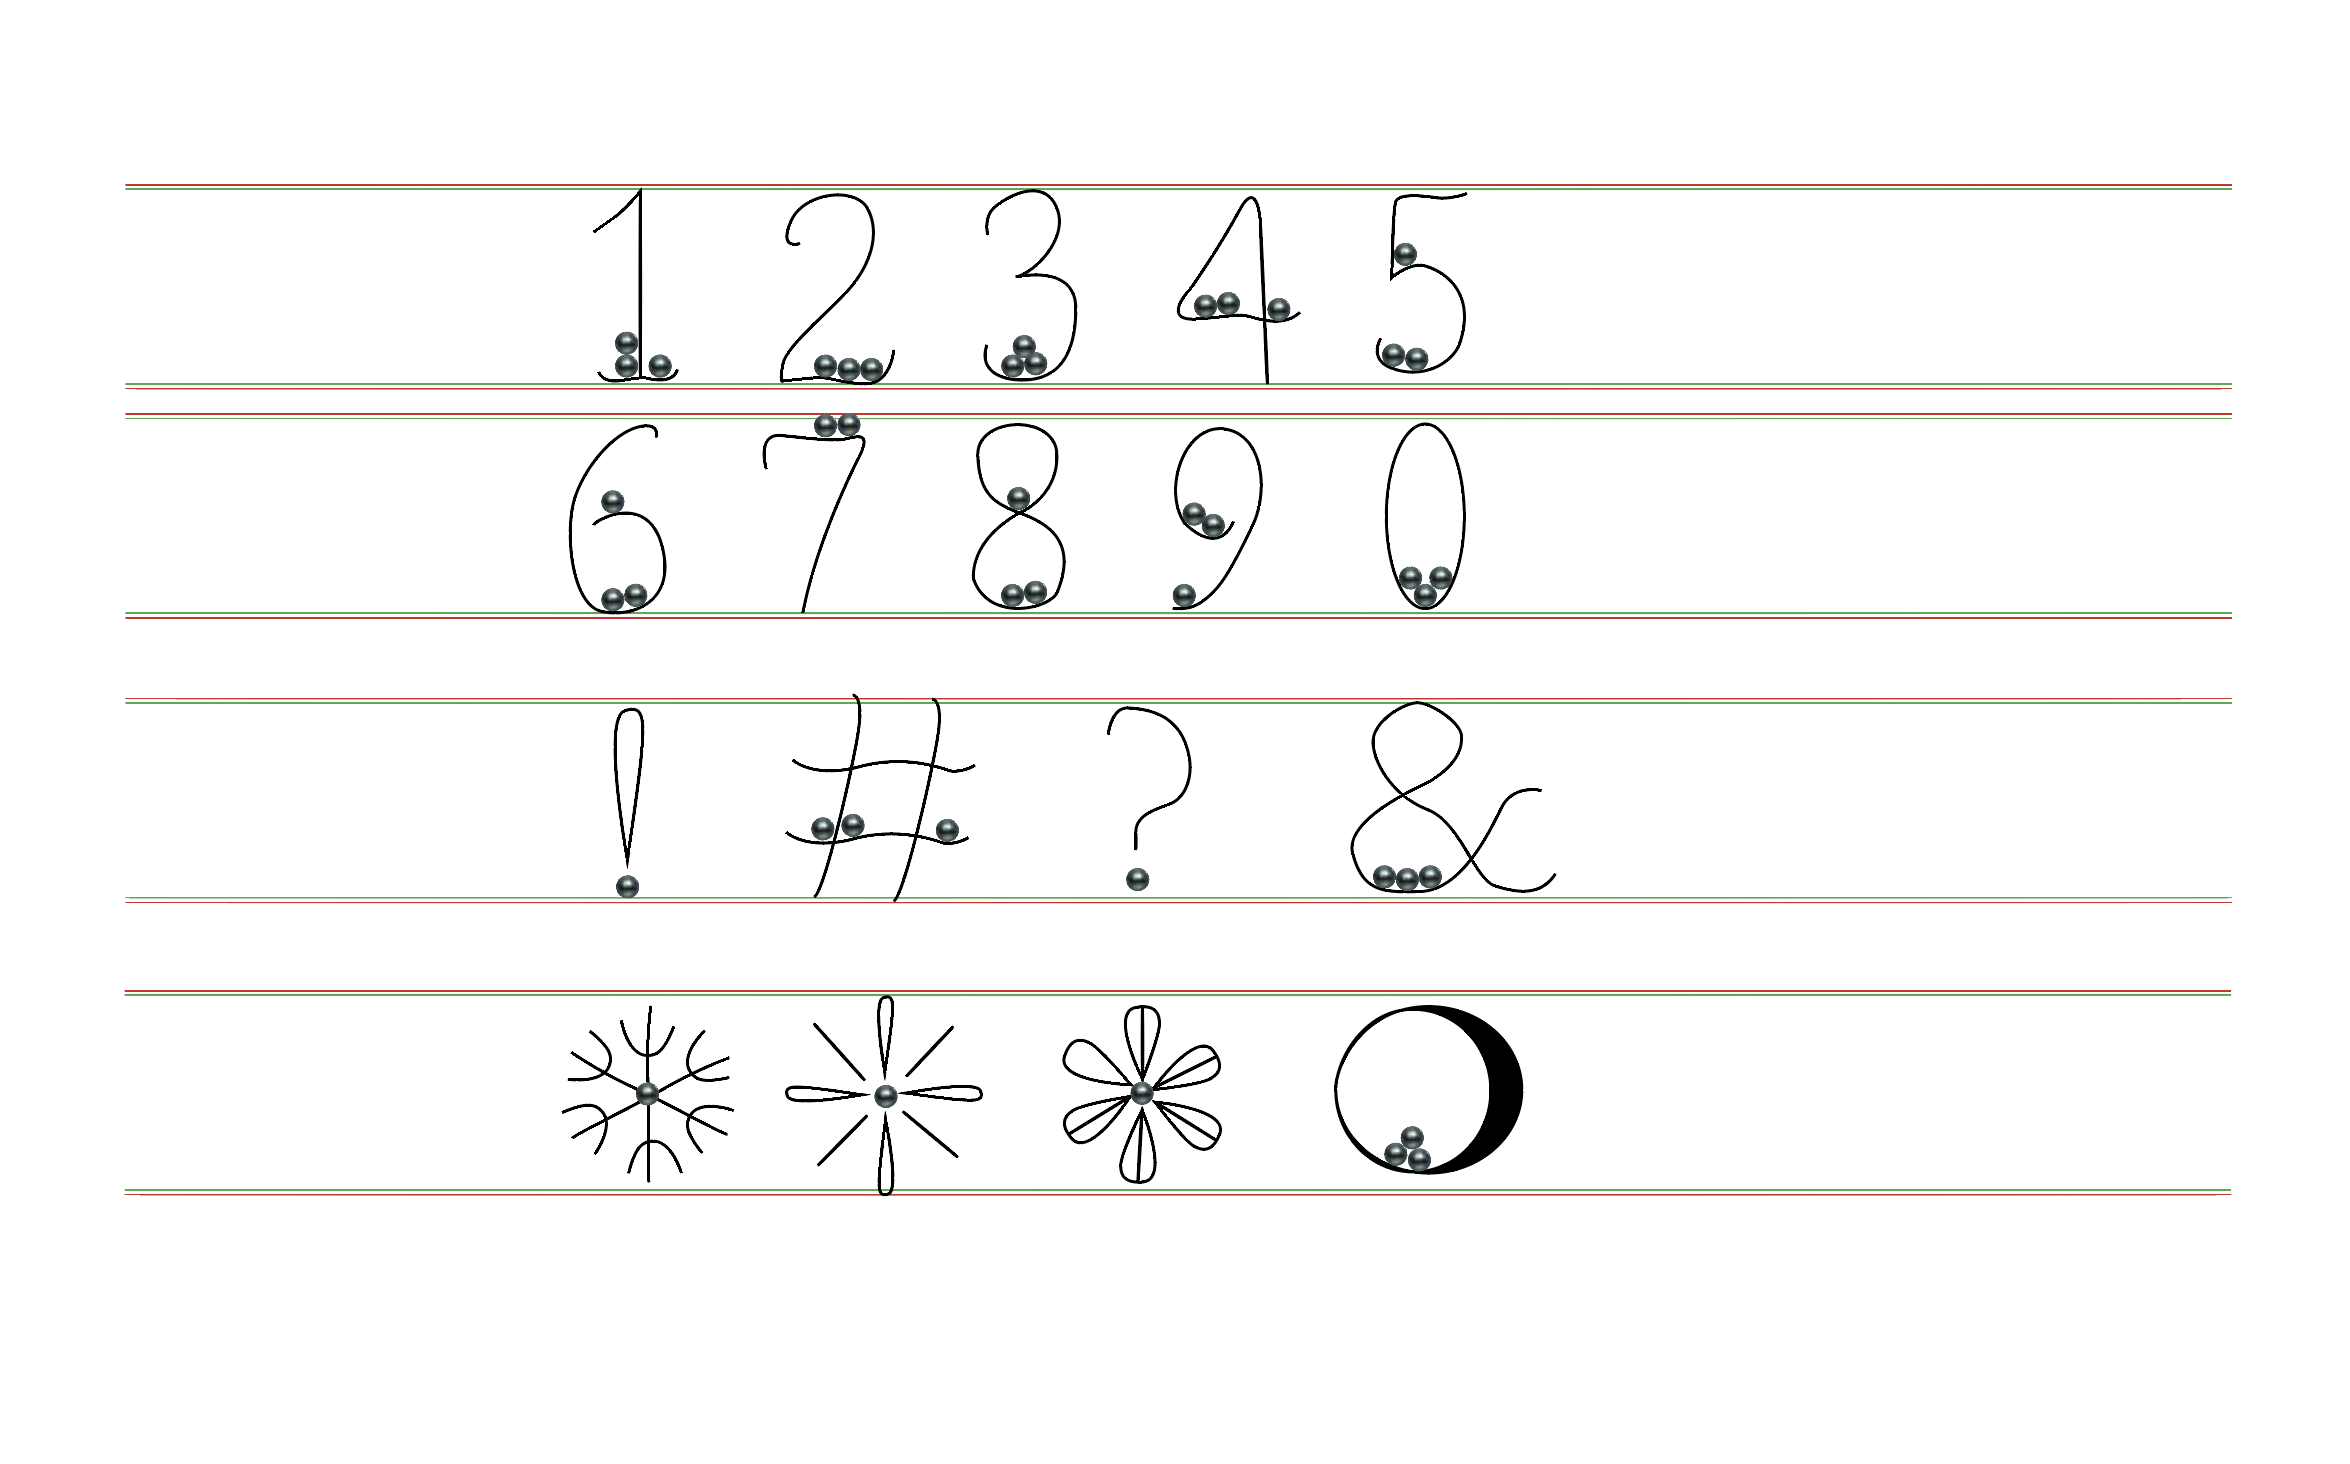 1 2 3 4 5
6 7 8 9 0
! # ? &